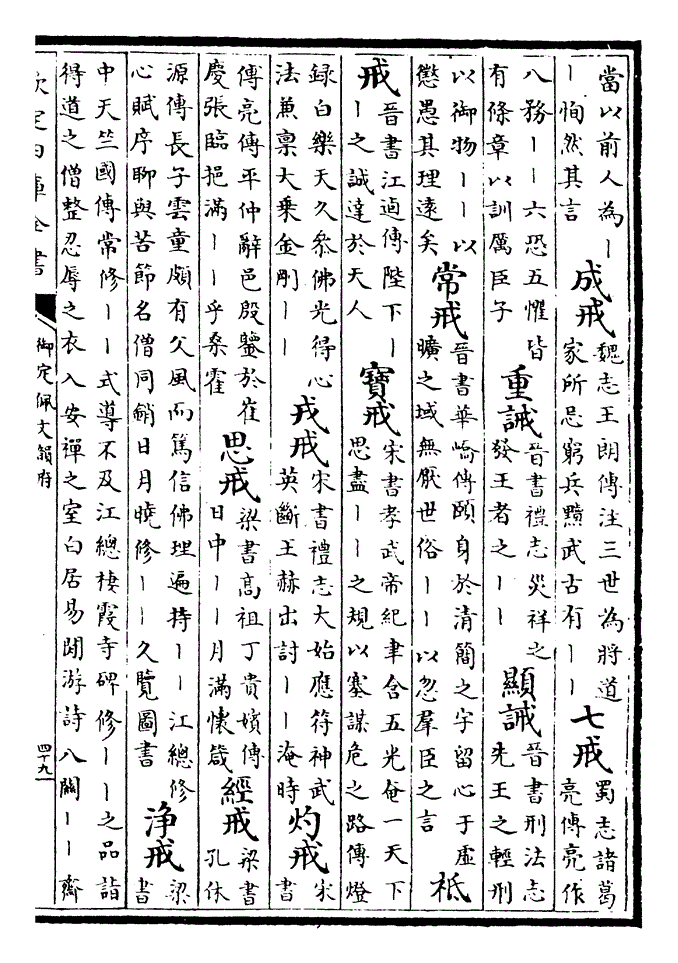 當以前人為丨
丨恂然其言
成戒
魏志王朗傳注三世為將道
家所忌窮兵黷武古有丨丨
七戒
蜀志諸葛
亮傳亮作
八務丨丨六恐五懼皆
有條章以訓厲臣子
重誡
晉書禮志災祥之
發王者之丨丨
顯誡
晉書刑法志
先王之輕刑
以御物丨丨以
懲愚其理遠矣
常戒
晉書華嶠傳頤身於清簡之宇留心于虛
曠之域無厭世俗丨丨以忽羣臣之言
祗
戒
晉書江逌傳陛下丨
丨之誠達於天人
寶戒
宋書孝武帝紀聿含五光奄一天下
思盡丨丨之規以塞謀危之路傳燈
録白樂天久叅佛光得心
法兼稟大乗金剛丨丨
戎戒
宋書禮志大始應符神武
英斷王赫出討丨丨淹時
灼戒
宋
書
傅亮傳平仲辭邑殷鑒於崔
慶張臨挹滿丨丨乎桑霍
思戒
梁書高祖丁貴嬪傳
日中丨丨月滿懷箴
經戒
梁書
孔休
源傳長子雲童頗有父風而篤信佛理遍持丨丨江總修
心賦序聊與苦節名僧同銷日月曉修丨丨久覽圖書
淨戒
梁
書
中天竺國傳常修丨丨式導不及江總棲霞寺碑修丨丨之品詣
得道之僧整忍辱之衣入安禪之室白居易閒游詩八關丨丨齋
欽定四庫全書
御定佩文韻府
四十九